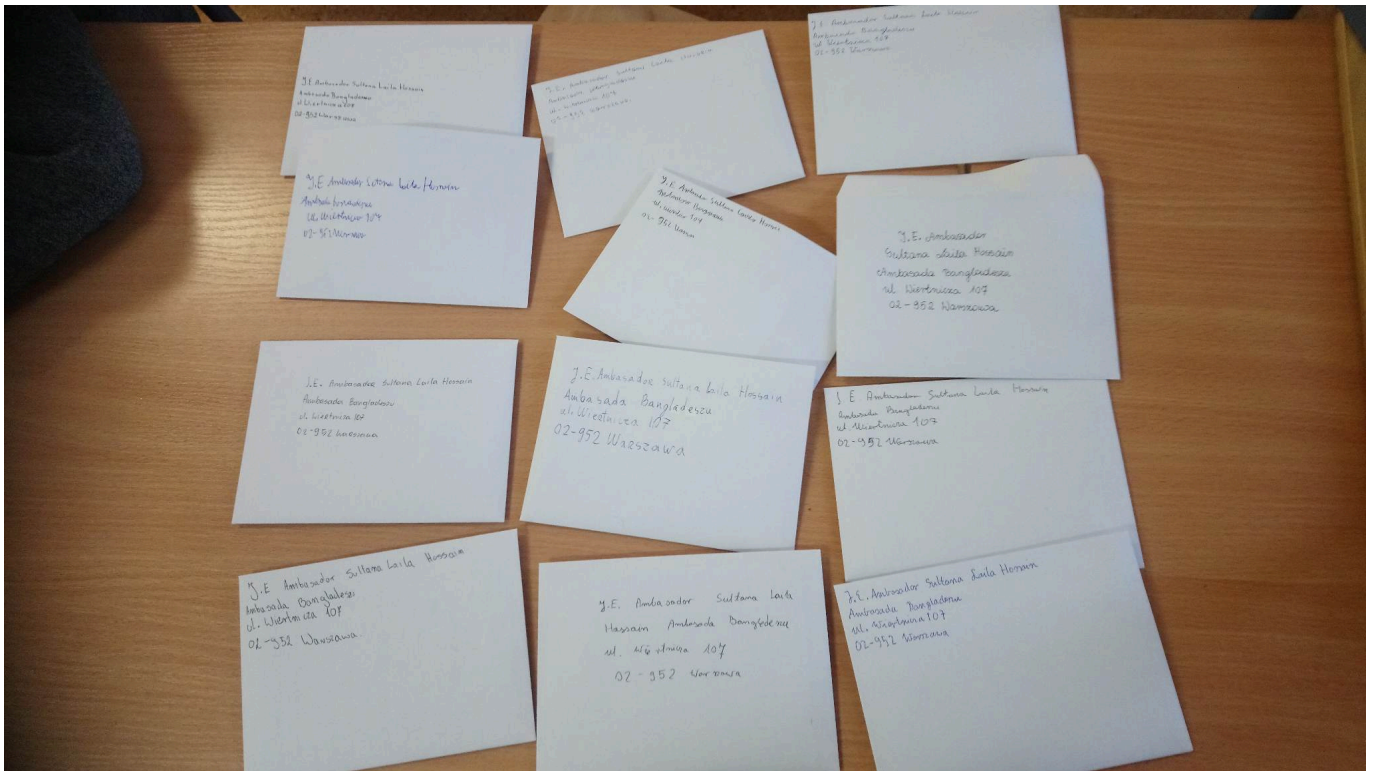 J.E. Ambasador Sultana Laila Hossain
Ambasada Bangladeszu
ul. Wiertnicza 107
02-952 Warszawa
J.E. Ambasador Sultana Laila
Ambasada
ul. Wiertnicza 107
02-952 Warszawa
J.E. Ambasador Sultana Laila Hossain
Ambasada Bangladeszu
ul. Wiertnicza 107
02-952 Warszawa
J.E Ambasador Sultana Laila Hossain
Ambasada
ul. Wiertnicza 107
02-952
J.E. Ambasador Sultana Laila
Ambasada
ul. 107
02-952
J.E. Ambasador
Sultana Laila Hossain
Ambasada Bangladeszu
ul. Wiertnicza 107
02-952 Warszawa
J.E. Ambasador Sultana Laila Hossain
Ambasada Bangladeszu
ul. Wiertnicza 107
02-952 Warszawa
J.E. Ambasador Sultana Laila Hossain
Ambasada Bangladeszu
ul. Wiertnicza 107
02-952 Warszawa
J E Ambasador Sultana Laila Hossain
Ambasada Bangladeszu
ul. Wiertnicza 107
02-952 Warszawa
J.E Ambasador Sultana Laila Hossain
Ambasada Bangladeszu
ul. Wiertnicza 107
02-952 Warszawa
J.E. Ambasador Sultana Laila
Hassain Ambasada Bangladeszu
ul. Wiertnicza 107
02-952 Warszawa
J.E. Ambasador Sultana Laila Hossain
Ambasada Bangladeszu
ul. Wiertnicza 107
02-952 Warszawa